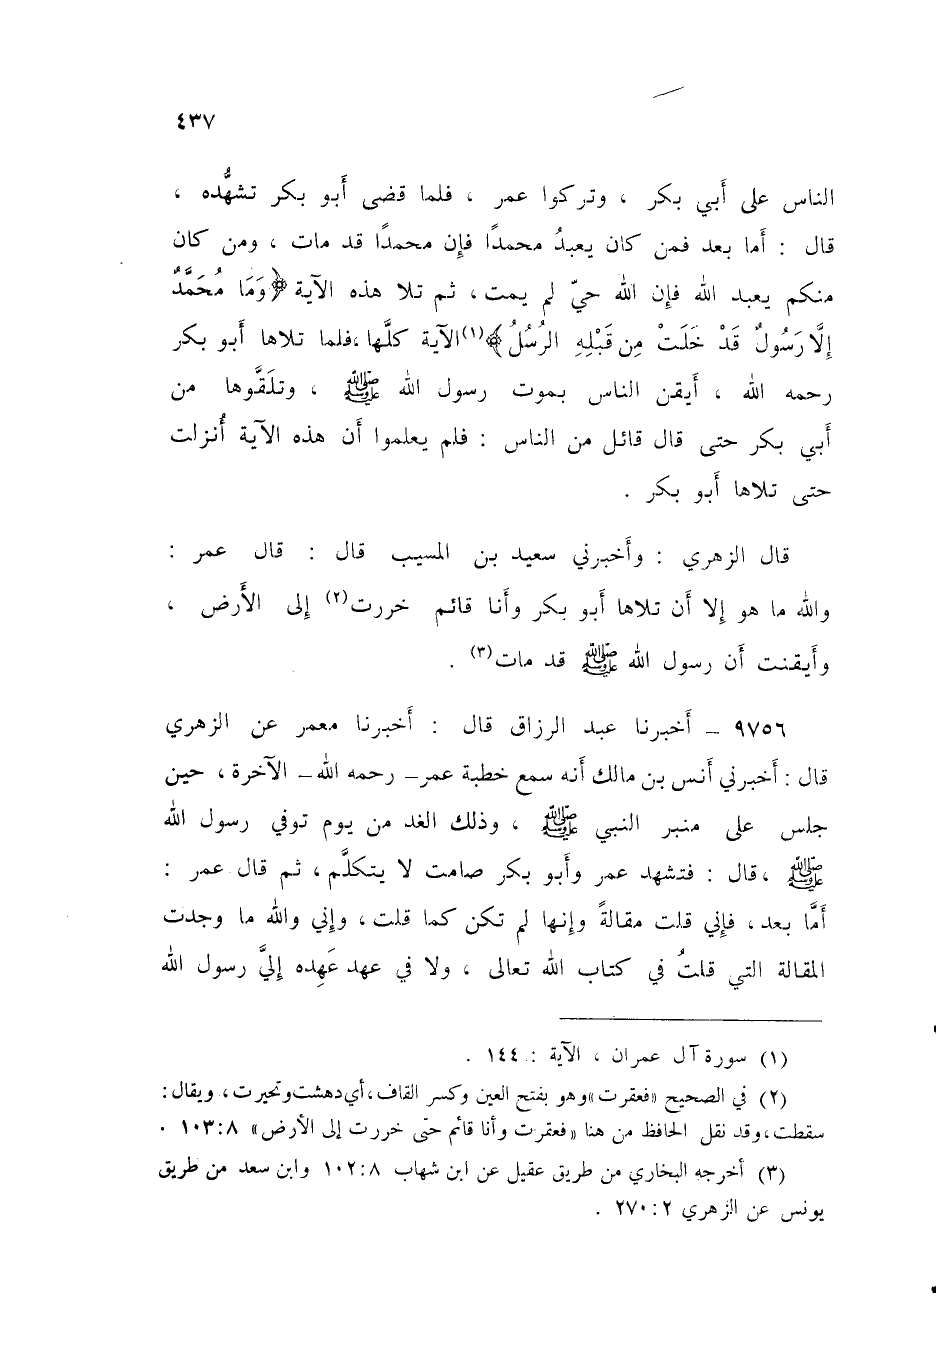 ٤٣٧
الناس على أَبي بكر ، وتركوا عمر ، فلما قضى أَبو بكر تشهُّده ،
قال : أَما بعد فمن كان يعبدُ محمدًا فإن محمدًا قد مات ، ومن كان
منكم يعبد الله فإن الله حيّ لم يمت، ثم تلا هذه الآية ﴿وَمَا مُحَمَّدٌ
إِلَّا رَسُولٌ قَدْ خَلَتْ مِن قَبْلِهِ الرُسُلُ﴾(١)الآية كلَّها،فلما تلاها أَبو بكر
رحمه الله ، أَيقن الناس بموت رسول الله ﷺ ، وتلَقَّوها من
أَبي بكر حتى قال قائل من الناس : فلم يعلموا أَن هذه الآية أُنزلت
حتى تلاها أَبو بكر .
قال الزهري : وأَخبرني سعيد بن المسيب قال : قال عمر :
والله ما هو إلا أَن تلاها أَبو بكر وأَنا قائم خررت(٢) إلى الأَرض ،
وأَيقنت أَن رسول الله ﷺ قد مات(٣) .
٩٧٥٦ – أَخبرنا عبد الرزاق قال : أَخبرنا معمر عن الزهري
قال : أَخبرني أَنس بن مالك أَنه سمع خطبة عمر– رحمه الله– الآخرة ، حين
جلس على منبر النبي ﷺ ، وذلك الغد من يوم توفي رسول الله
ﷺ ،قال : فتشهد عمر وأَبو بكر صامت لا يتكلَّم ، ثم قال عمر :
أَمَّا بعد ، فإني قلت مقالةً وإنها لم تكن كما قلت ، وإني والله ما وجدت
المقالة التي قلتُ في كتاب الله تعالى ، ولا في عهد عَهِده إليَّ رسول الله
(١) سورة آل عمران ، الآية : ١٤٤ .
(٢) في الصحيح «فعقرت»وهو بفتح العين وكسر القاف،أي دهشت وتحيرت ، ويقال :
سقطت،وقد نقل الحافظ من هنا «فعقرت وأنا قائم حتى خررت إلى الأرض» ١٠٣:٨ .
(٣) أخرجه البخاري من طريق عقيل عن ابن شهاب ١٠٢:٨ وابن سعد من طريق
يونس عن الزهري ٢٧٠:٢ .